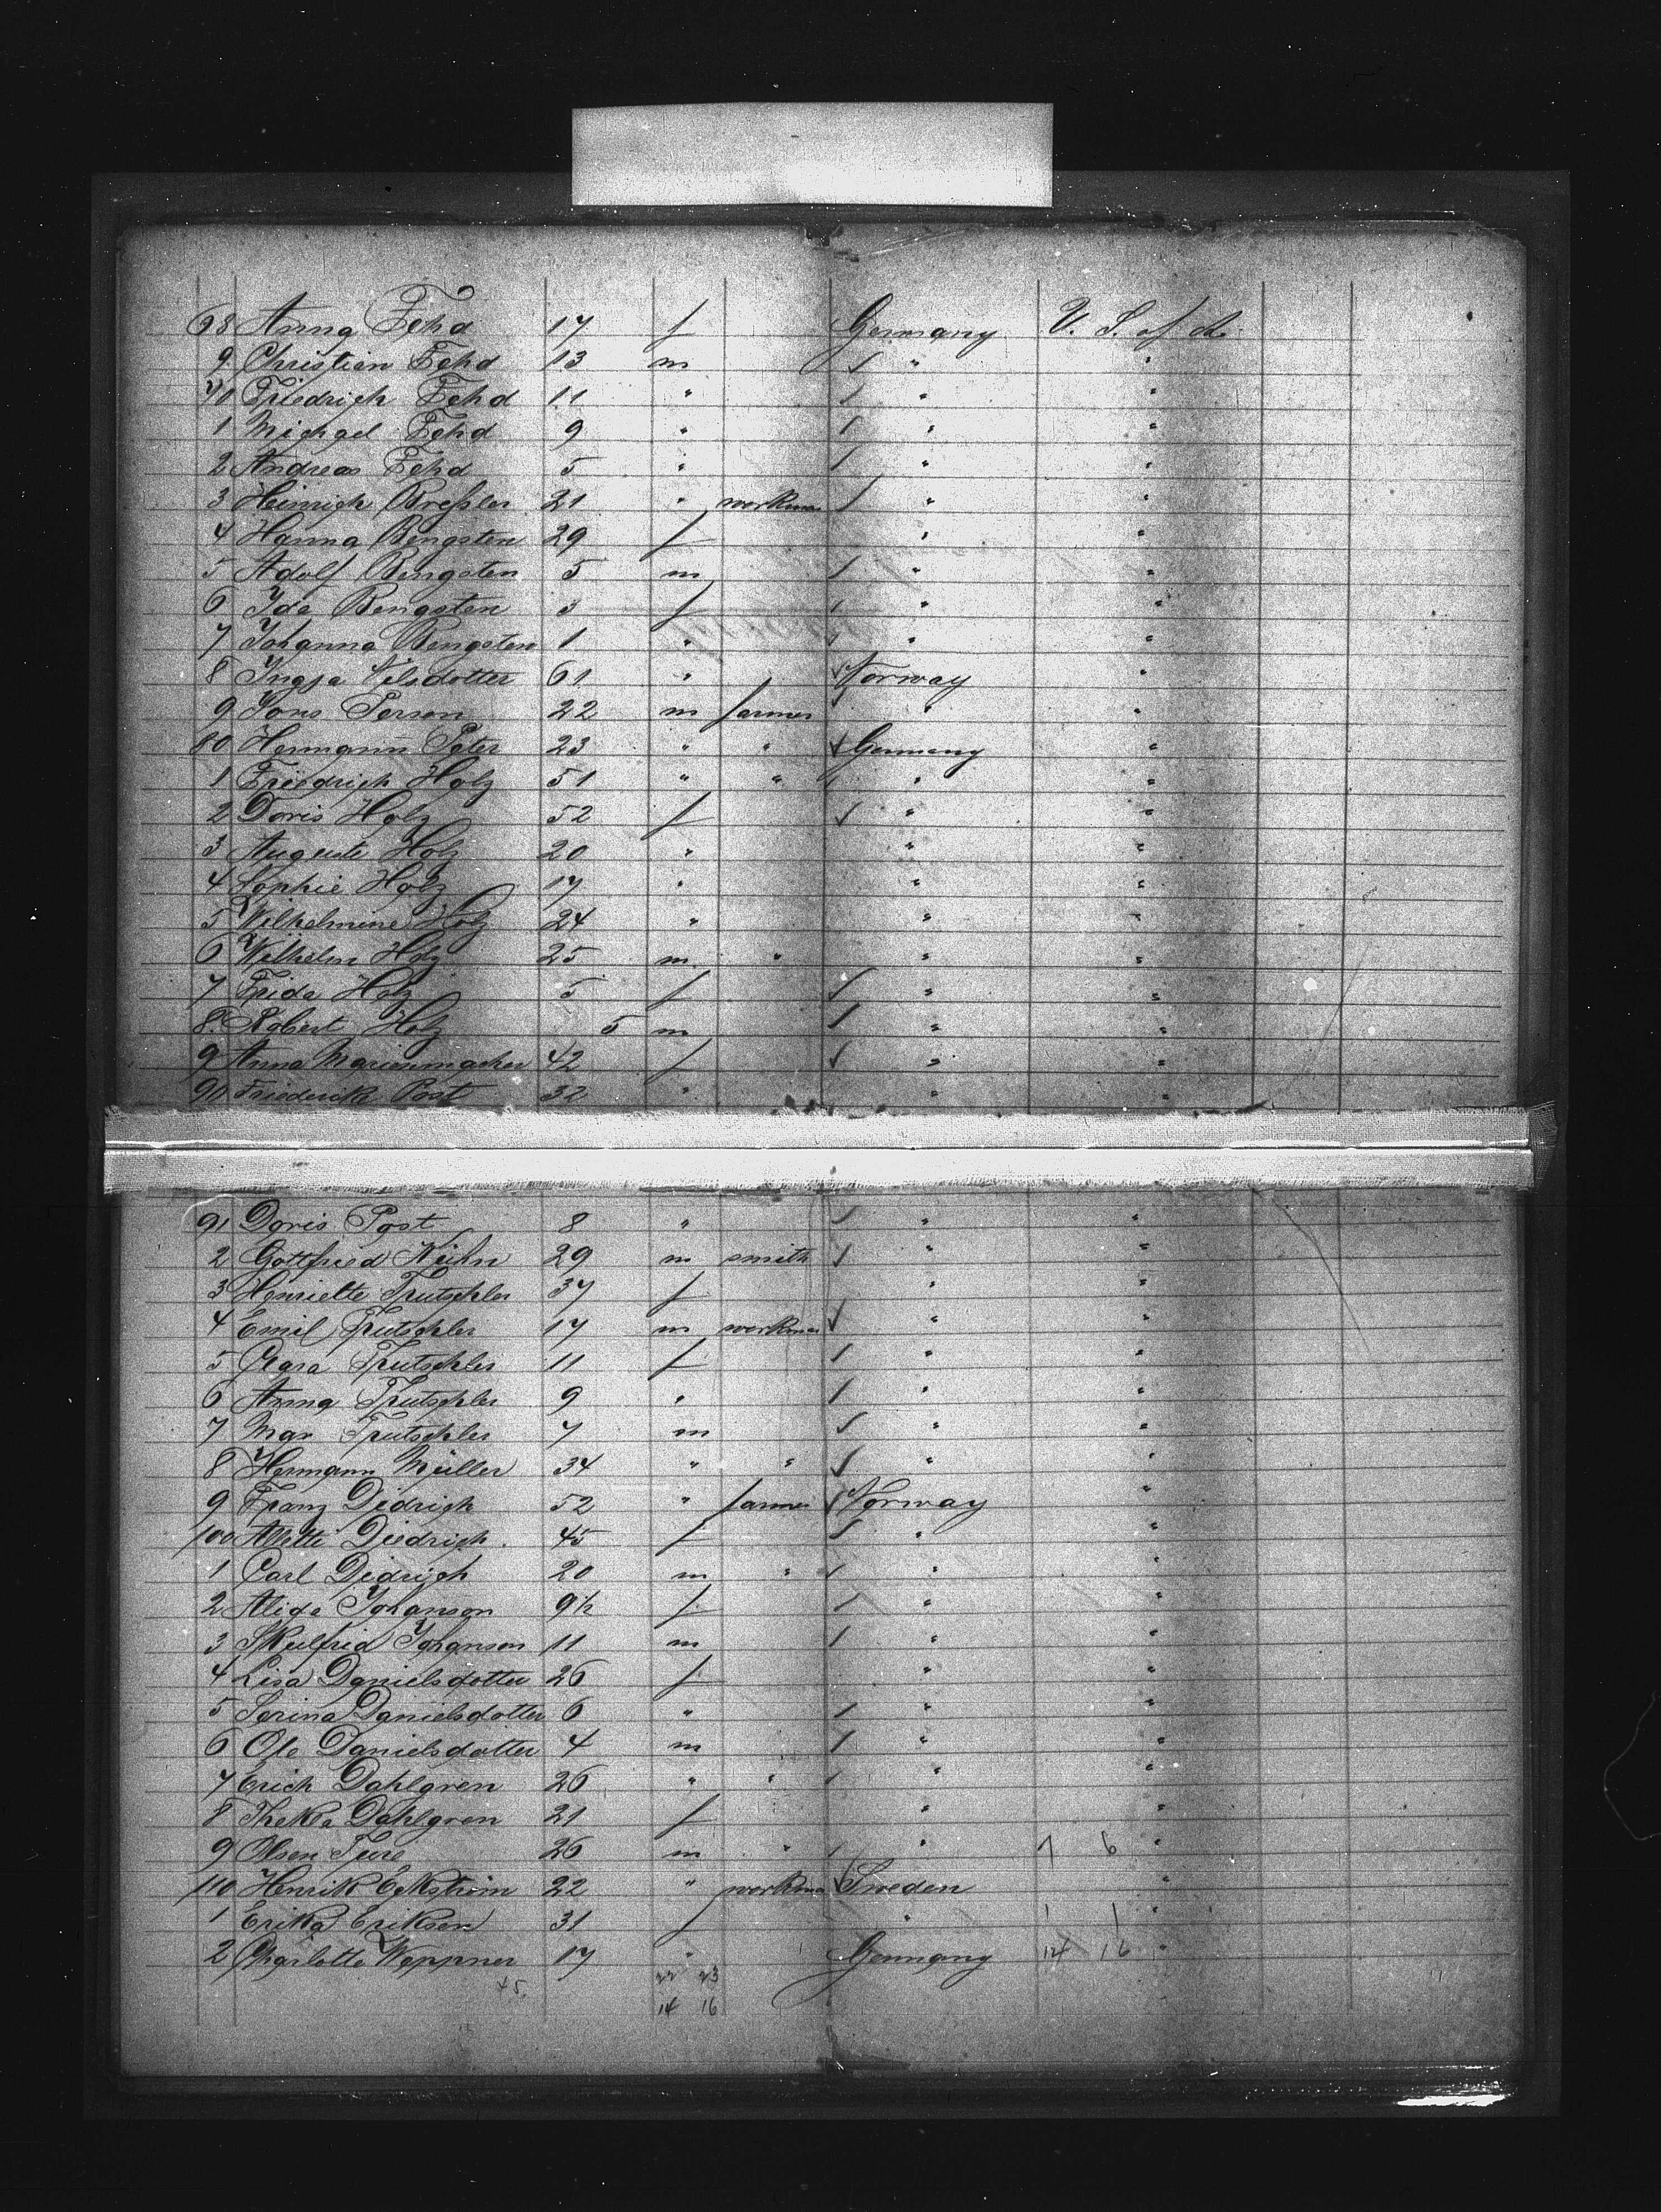 68 Anna Fehd 17 f Germany U. S. of A.
9 Christian Fehd 13 m " "
70 Friedrich Fehd 11 " " "
1 Michael Fehd 9 " " "
2 Andreas Fehd 5 " " "
3 Heinrich Kreßler 21 " workman " "
4 Hanna Bengsten 29 f " "
5 Adolf Bengsten 5 m " "
6 Ida Bengsten 3 f " "
7 Johanna Bengsten 1 " " "
8 Ingja Nilsdotter 61 " Norway "
9 Jons Person 22 m farmer " "
80 Hermann Peter 23 " " Germany "
1 Friedrich Holz 51 " " " "
2 Doris Holz 52 f " "
3 Auguste Holz 20 " " "
4 Sophie Holz 17 " " "
5 Wilhelmine Holz 24 " " "
6 Wilhelm Holz 25 m " " "
7 Frida Holz 5 f " "
8 Robert Holz 5 m " "
9 Anna Marienmacher 42 f " "
90 Friederik Post 32 " " "
91 Doris Post 8 " " "
2 Gottfried Kühn 29 m smith " "
3 Henriette Trutschler 37 f " "
4 Emil Trutschler 17 m workman " "
5 Clara Trutschler 11 f " "
6 Anna Trutschler 9 " " "
7 Max Trutschler 7 m " "
8 Hermann Müller 34 " " " "
9 Franz Didrich 52 " farmer Norway "
100 Alette Diedrich 45 f " "
1 Carl Didrich 20 m " " "
2 Alida Johanson 9½ f " "
3 Johanson 11 m " "
4 Lisa Danielsdotter 26 f " "
5 Serina Danielsdotter 6 " " "
6 Ole Danielsdotter 4 m " "
7 Erich Dahlgren 26 " " " "
8 Thekla Dahlgren 21 f " "
9 Olsen Ture 26 m " " 7 6 "
110 Henrik Eckström 22 " workman Sweden "
1 Erika Eriksen 31 f " 1 1 "
2 Charlotte Weppner 17 " Germany 14 16 "
45. 22 23
14 16